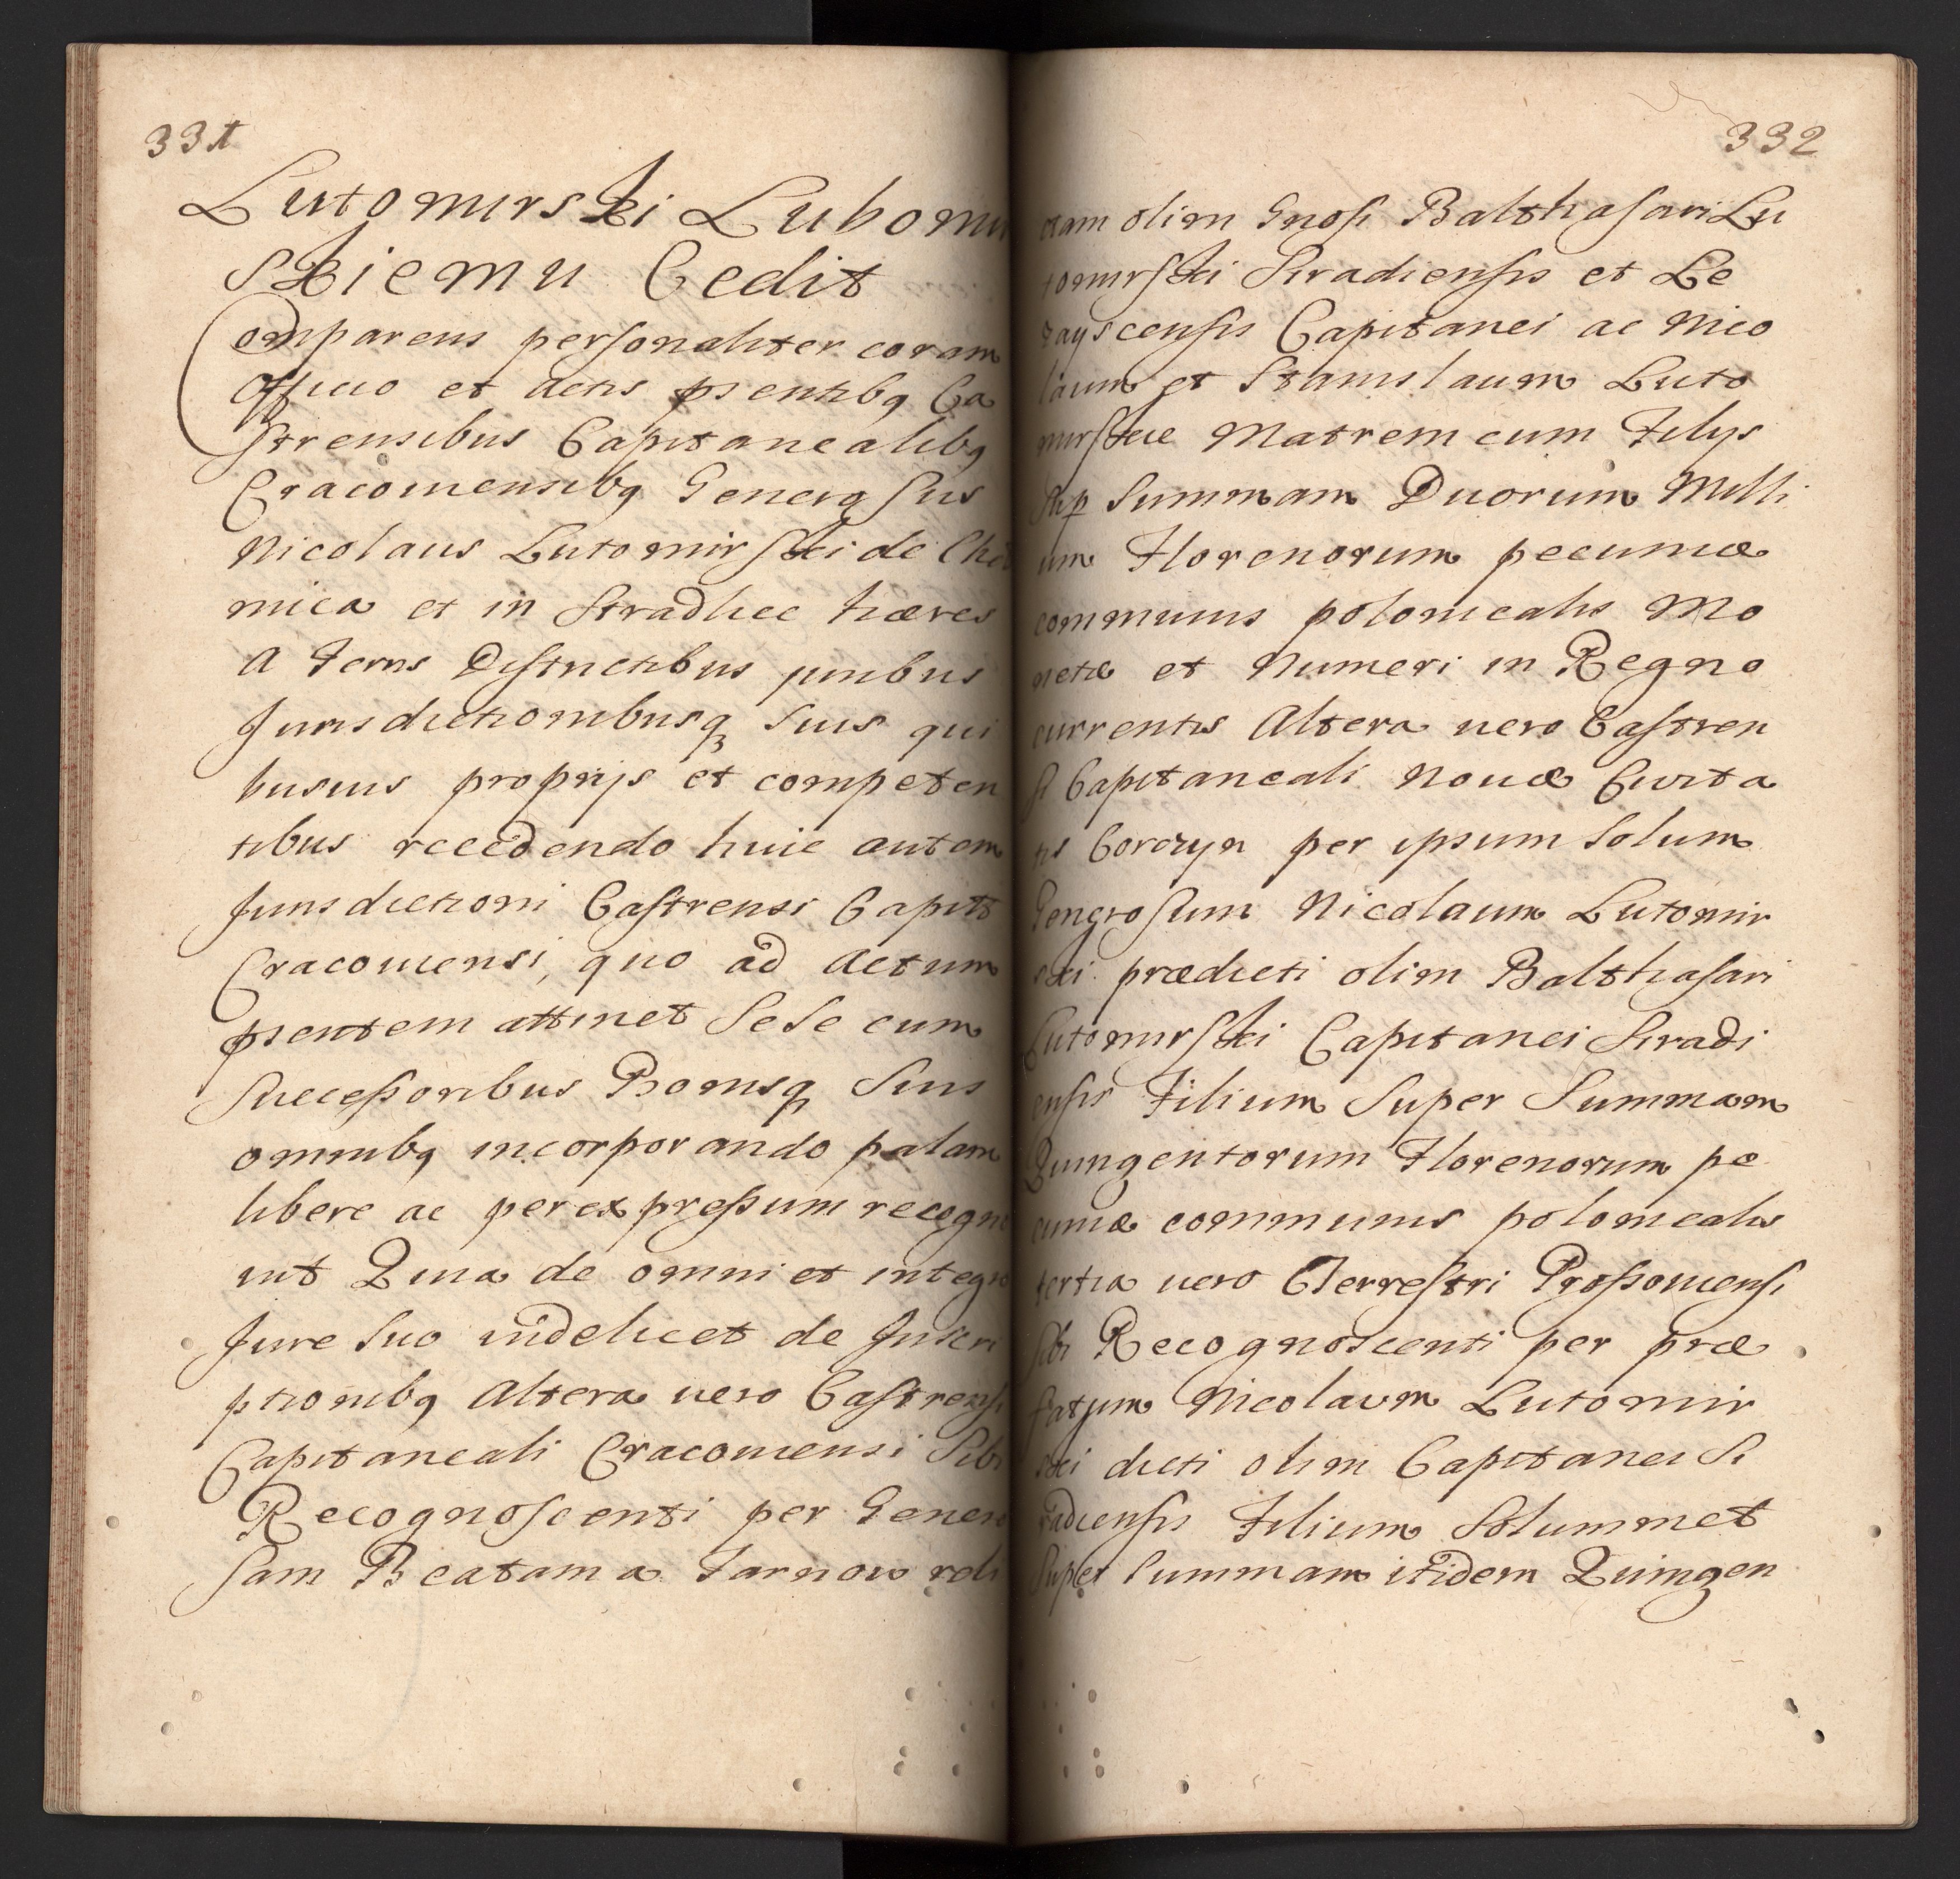 331
Lutomirski Lubomir
skiemu Cedit
Comparens personaliter coram
Officio et Actis pſentibq Ca
ſtrensibus Capitanealibq
Cracoviensibq Generoſus
Nicolaus Lutomirſki de Cho
mica et in Stradlice hæres
A Terris Diſtrictibus juribus
Jurisdictionibusq Suis qui
busvis proprijs et competen
tibus recedendo huic autem
Jurisdictioni Caſtrensi Capit
Cracoviensi, quo ad Actum
pſentem attinet SeSe cum
Succeſſoribus Bonisq Suis
omnibq incorporando palam
libere ac per expreſſum recogno
vit Quia de omni et integro
Jure Suo videlicet de Inscri
ptionibq Altera vero Caſtrensi
Capitaneali Cracoviensi Sibi
Recognoſcenti per Genero
Sam Beatam a Tarnow reli
332
ctam olim Gnoſi Balthaſari Lu
tomirſki Siradienſis et Le
zayscenſis Capitanei ac Nico
laum et Stanislaum Luto
mirſkie Matrem cum Filijs
Sup Summam Duorum Milli
um Florenorum pecuniæ
communis polonicalis Mo
netæ et Numeri in Regno
currentis Altera vero Caſtren
ſi Capitaneali Novæ Civita
tis Corczyn per ipsum Solum
Generoſum Nicolaum Lutomir
ski prædicti olim Balthaſari
Lutomirſki Capitanei Siradi
enſis Filium Super Summam
Quingentorum Florenorum pe
cuniæ communis polonicalis
tertia vero Terreſtri Proſſoviensi
Sibi Recognoscenti per præ
fatum Nicolaum Lutomir
ski dicti olim Capitanei Si
radienſis Filium Solummet
Super Summam itidem Quingen